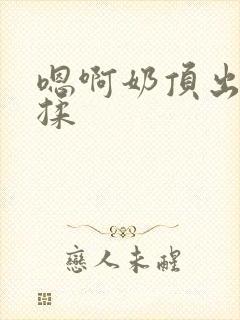 嗯啊奶頂出
揉
戀人未醒